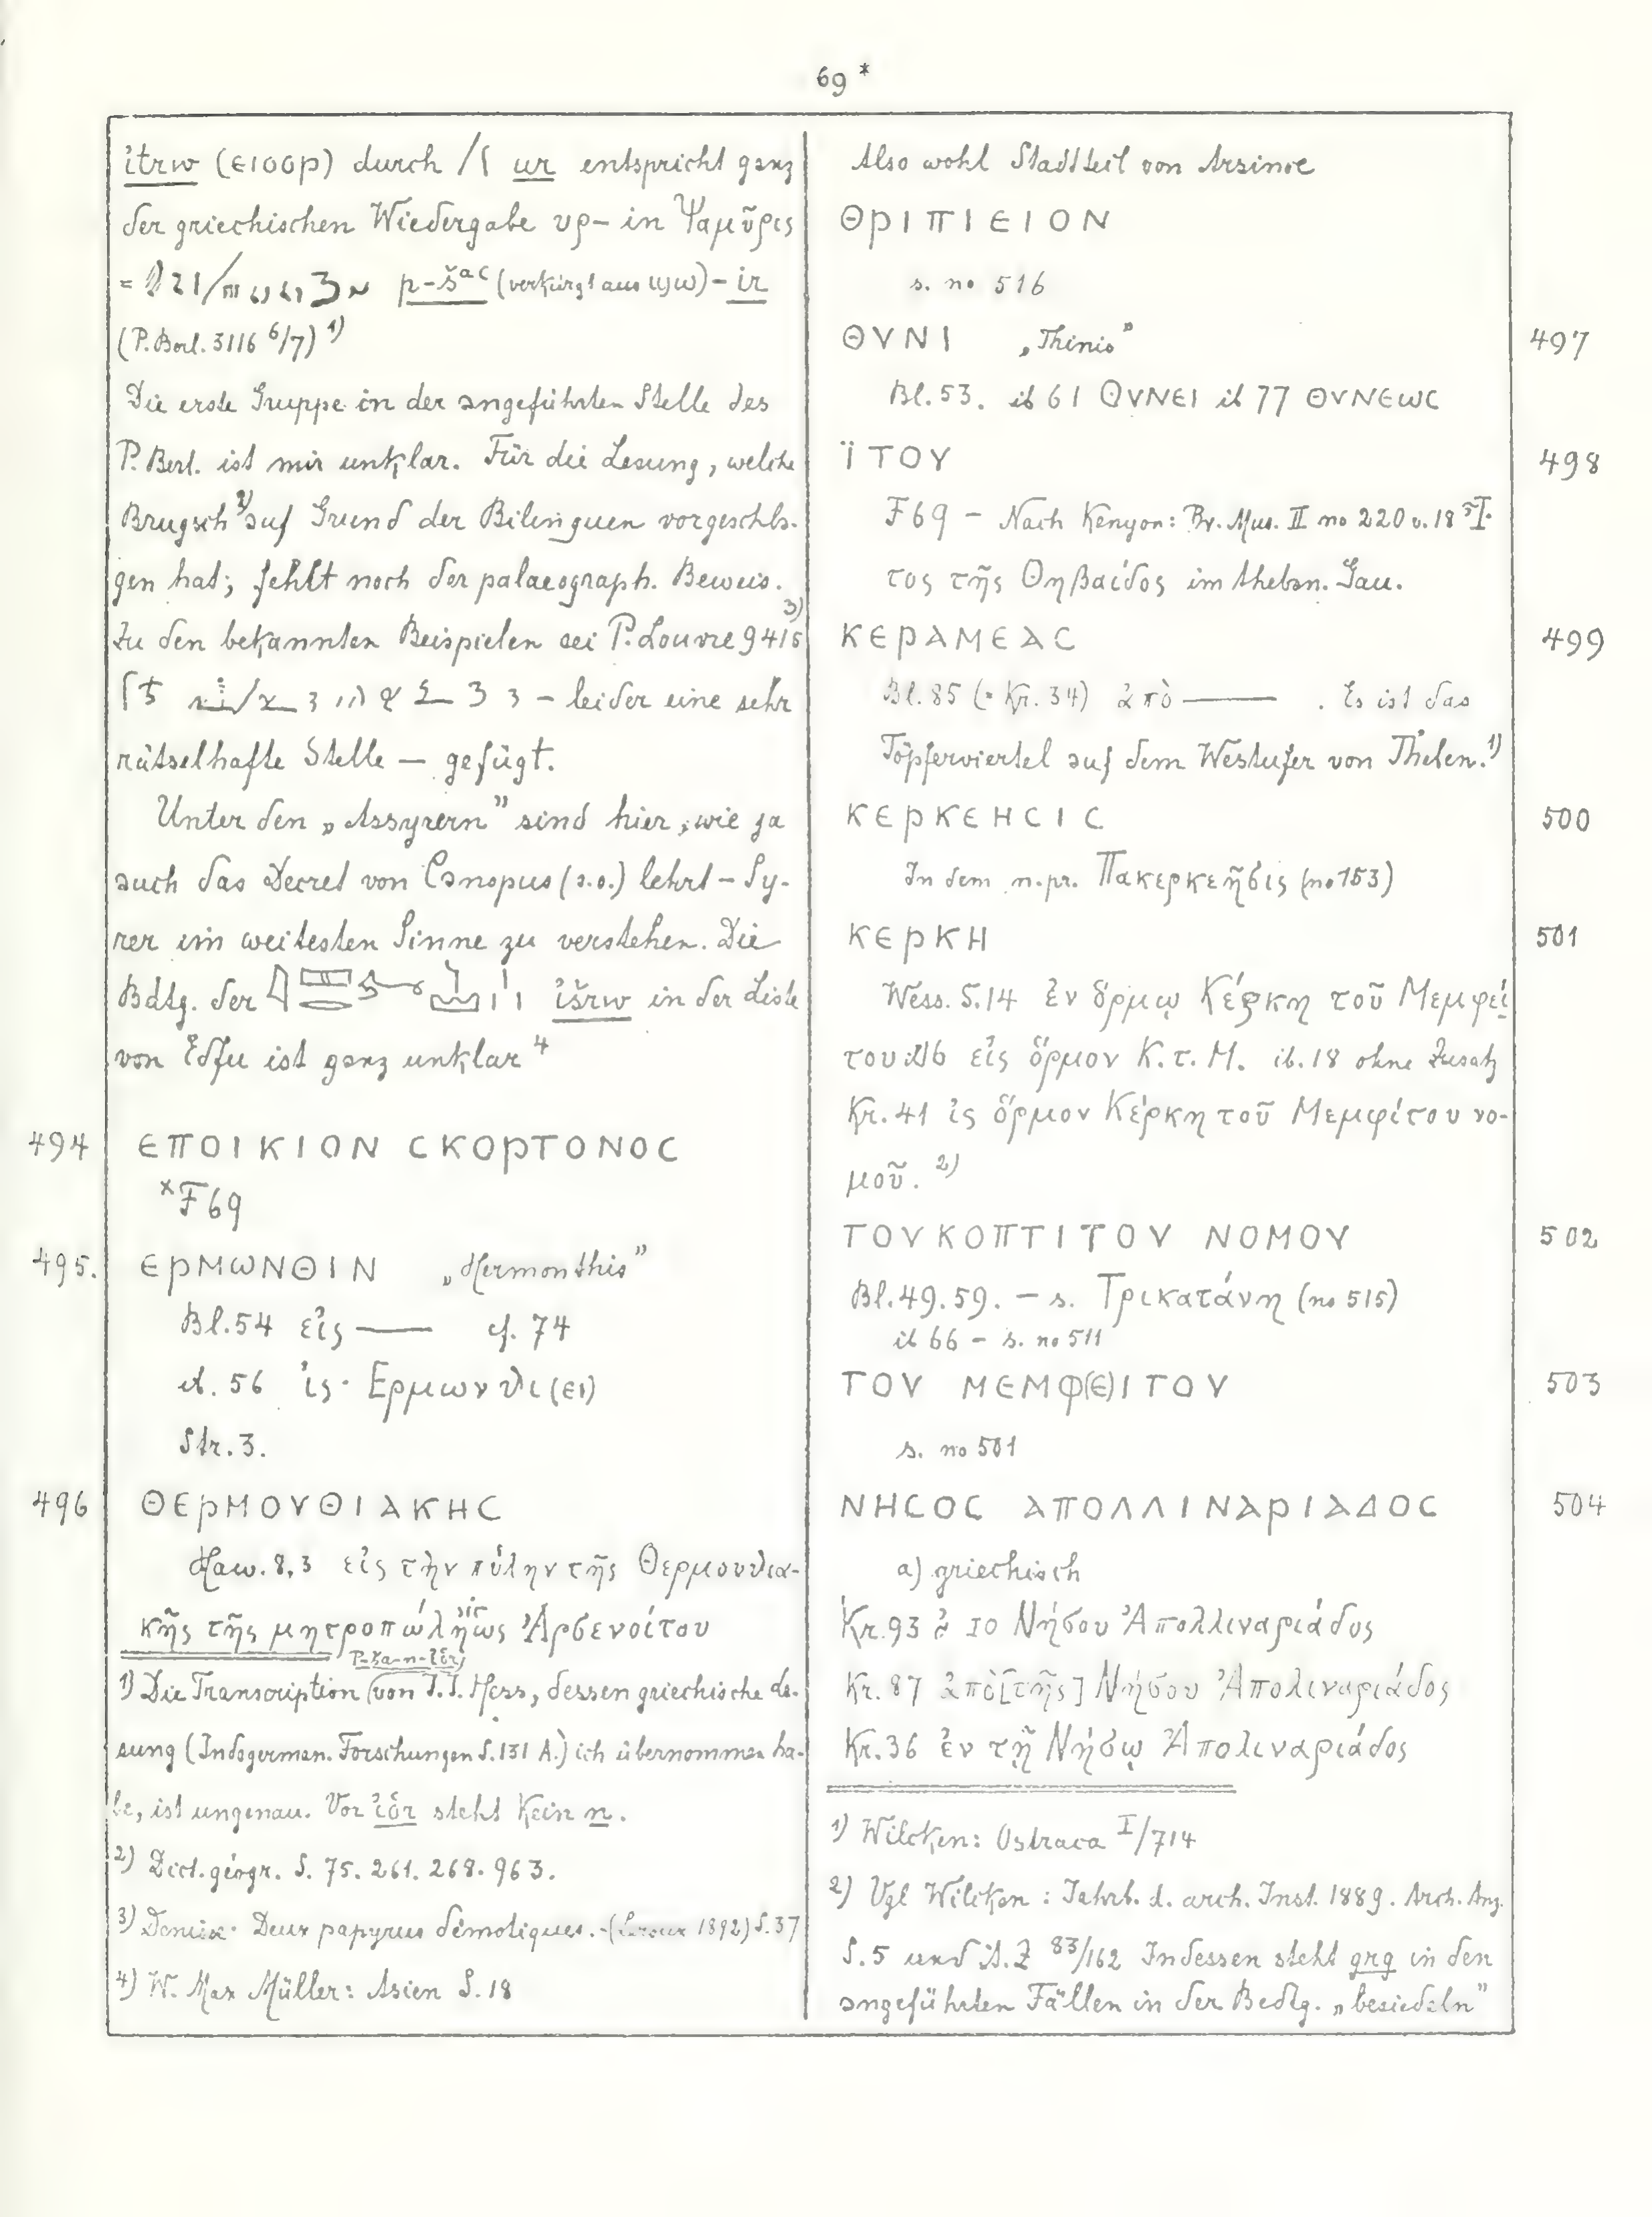 69*
itrw (ⲉⲓⲟⲟⲣ) durch ur entspricht ganz
der griechischen Wiedergabe υρ– in Ψαμῦρις
= p-šaʿ (verkürzt aus ϣⲱ) – ir
(P. Berl. 3116 6/7) 1)
Die erste Gruppe in der angeführten Stelle des
P. Berl. ist mir unklar. Für die Lesung, welche
Brugsch 2) auf Grund der Bilinguen vorgeschla-
gen hat, fehlt noch der palaeograph. Beweis.
Zu den bekannten Beispielen sei P. Louvre 9415 3)
– leider eine sehr
rätselhafte Stelle – gefügt.
Unter den „Assyrern” sind hier, wie ja
auch das Decret von Canopus (s.o.) lehrt – Sy-
rer im weitesten Sinne zu verstehen. Die
Bdtg. der išrw in der Liste
von Edfu ist ganz unklar 4
494 ЄΠΟΙΚΙΟΝ CΚΟΡΤΟΝΟC
*F 69
495. ЄΡΜѠΝΘΙΝ „Hermonthis”
Bl. 54 εἰς —— cf. 74
ib. 56 ἰς · Ερμωνϑι(ει)
Str. 3.
496 ΘЄΡΜΟΥΘΙΑΚΗC
Haw. 8,3 εἰς τὴν πύλην τῆς Θερμουϑια-
κῆς τῆς μητροπώληως sic Ἀρσενοίτου
1) Die Transcription (von J. J. Hess, dessen griechische Le-
sung (Indogerman. Forschungen S. 131 A.) ich übernommen ha-
be, ist ungenau. Vor steht kein n.
2) Dict. géogr. S. 75. 261. 268. 963.
3) Deux papyrus démotiques. – (Leroux 1892) S. 37
4) W. Max Müller: Asien S. 18
Also wohl Stadtteil von Arsinoe
ΘΡΙΠΙЄΙΟΝ
s. no 516
ΘΥΝΙ „Thinis” 497
Bl. 53. ib 61 ΘΥΝЄΙ ib 77 ΘΥΝЄѠC
ΪΤΟΥ 498
F 69 – Nach Kenyon: Br. Mus. II no 220 v. 18 Ἴ-
τος τῆς Θηβαίδος im theban. Gau.
ΚЄΡΑΜЄΑC 499
Bl. 85 (= Kr. 34) ἀπὸ —— . Es ist das
Töpferviertel auf dem Westufer von Theben. 1)
ΚЄΡΚЄΗCΙC 500
In dem n. pr. Πακερκεῆσις (no 153)
ΚЄΡΚΗ 501
Wess. S. 14 ἐν ὅρμῳ Κέρκη τοῦ Μεμφεί
του εἰς ὅρμον Κ. τ. Μ. ib. 18 ohne Zusatz
Kr. 41 ἰς ὅρμον Κέρκη τοῦ Μεμφίτου νο-
μοῦ. 2)
ΤΟΥ ΚΟΠΤΙΤΟΥ ΝΟΜΟΥ 502
Bl. 49. 59. – s. Τρικατάνη (no 515)
ib 66 – s. no 511
ΤΟΥ ΜЄΜΦ(Є)ΙΤΟΥ 503
s. no 501
ΝΗCΟC ΑΠΟΛΛΙΝΑΡΙΑΔΟC 504
a) griechisch
Kr. 93 Νήσου Ἀπολλιναριάδος
Kr. 87 ἀπὸ [τῆς] Νήσου Ἀπολιναριάδος
Kr. 36 ἐν τῇ Νήσῳ Ἀπολιναριάδος
1) Wilcken: Ostraca I/714
2) Vgl Wilcken: Jahrb. d. arch. Inst. 1889. Arch. Anz.
S. 5 und Ä. Z 83/162 Indessen steht grg in den
angeführten Fällen in der Bedtg. „besiedeln”